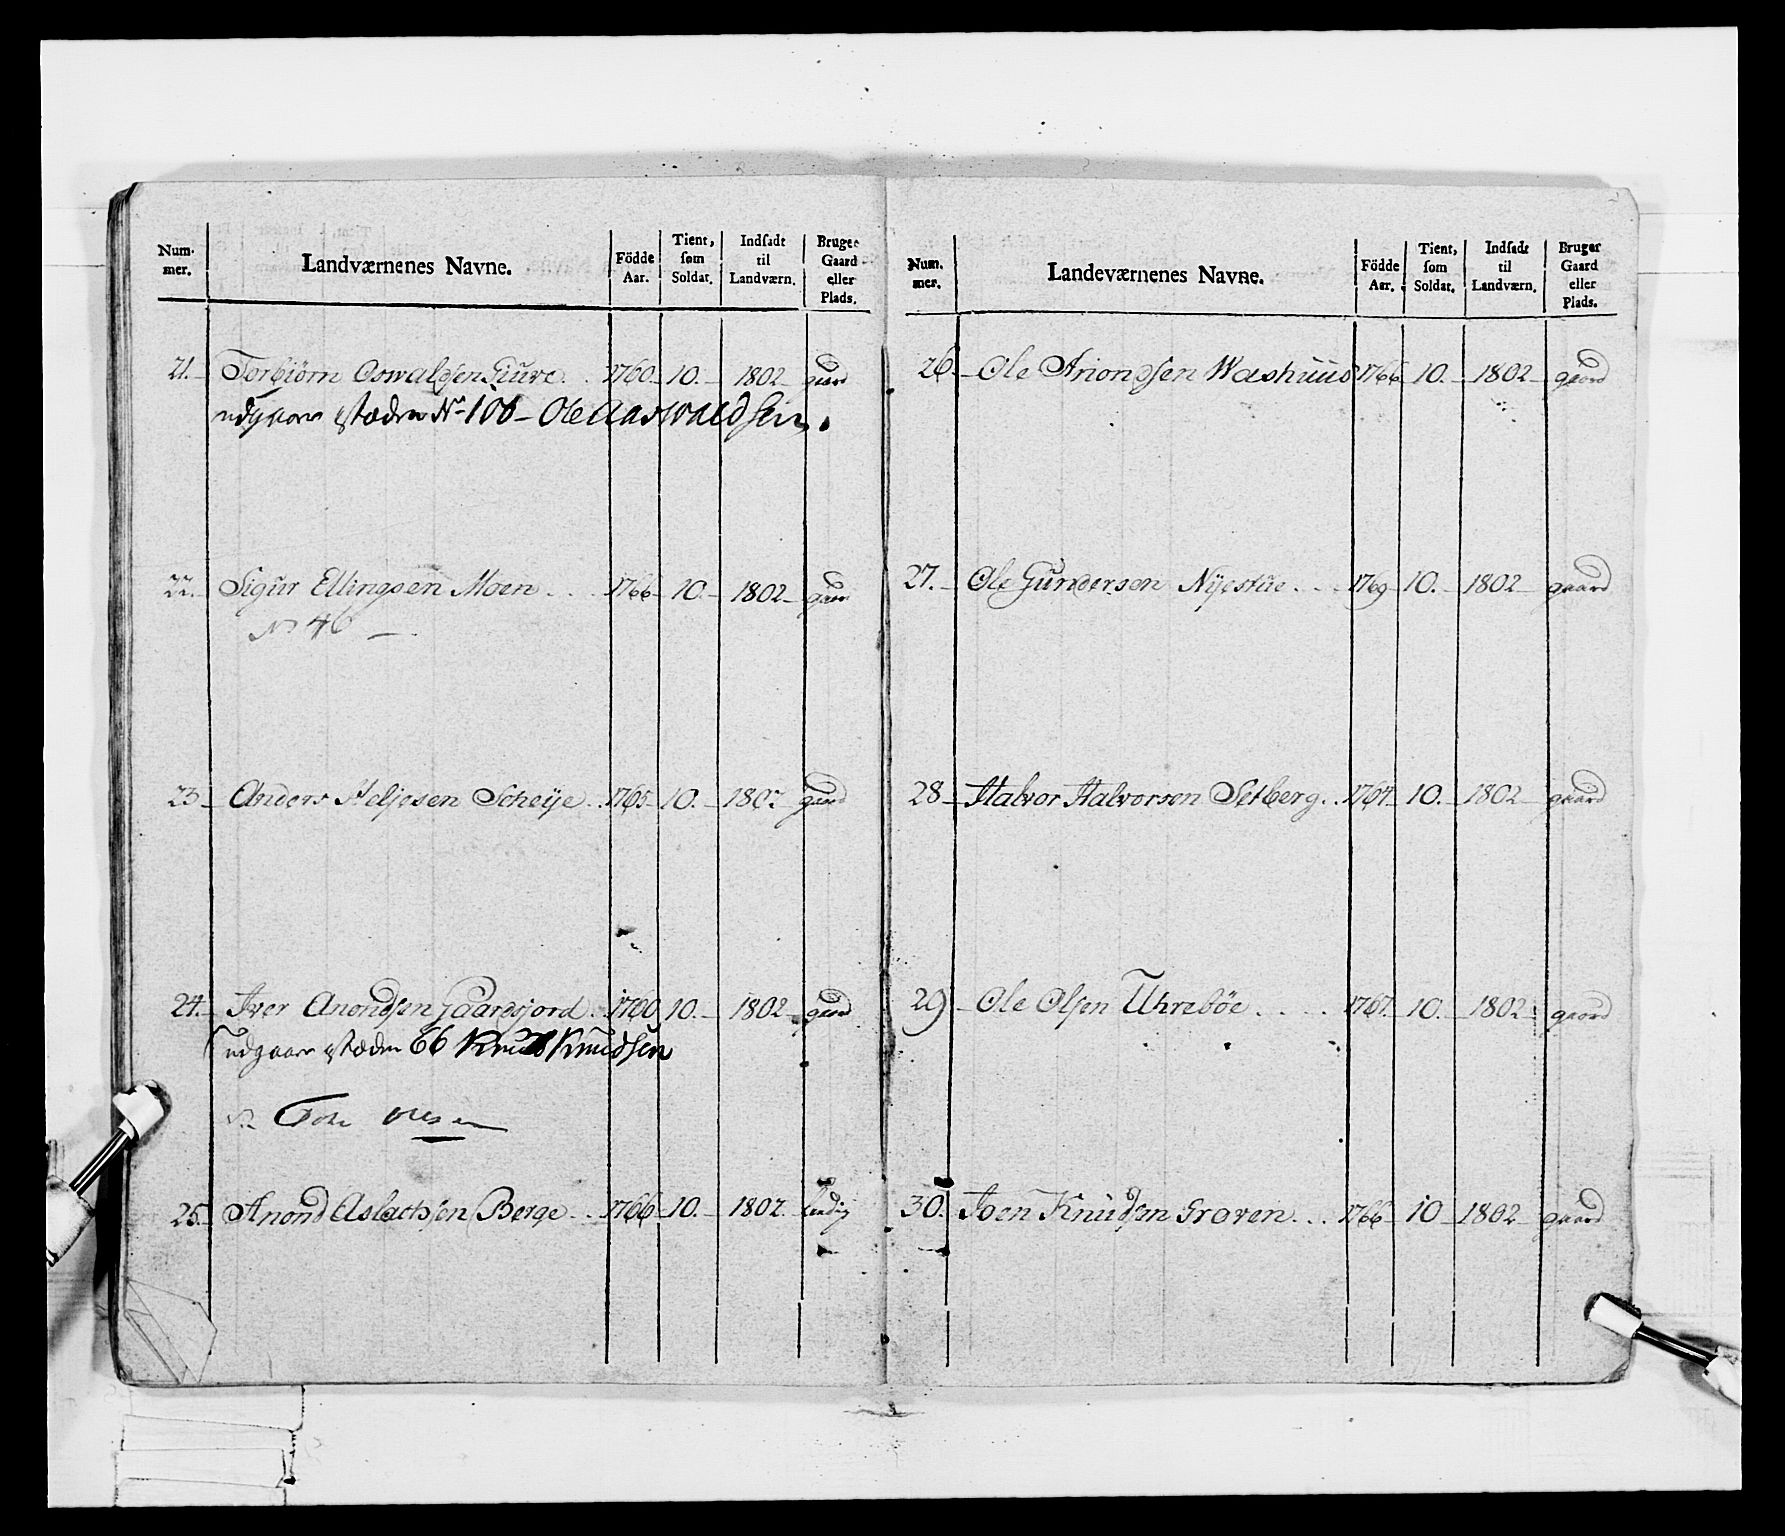 Num-
mer.
Landværnenes Navne.
Födde
Aar.
Tient,
som
Soldat.
Indsadt
til
Landværn.
Bruger
Gaard
eller
Plads.
21. Torbiörn Oswaldsen Giuve. 1760. 10. 1802 gaard
udgaaer istæden No 106 - Ole Aaswaldsen.
22. Sigur Ellingsen Moen . . . 1766 10. 1802 gaar
No 46 —
23. Anders Heljesen Scheije . . 1765 10. 1802 gaard
24. Iver Anondsen Gaardsjord. 1760 10. 1802 gaard
udgaaer istæden 66 Knud Knudsen
No Tow Olsen
25. Anond Aslachsen Berge . . 1766 10. 1802. ledig
Num-
mer.
Landeværnenes Navne.
Födde
Aar.
Tient,
som
Soldat.
Indsadt
til
Landværn.
Bruger
Gaard
eller
Plads.
26. Ole Anondsen Washuus 1766 10. 1802 gaard
27. Ole Gundersen Nyestue . . . 1769 10. 1802 gaard
28 Halvor Halvorsen Setberg . . 1764. 10. 1802 gaard
29 Ole Olsen Uhreböe . . . . 1767. 10. 1802 gaard
30. Joen Knudsen Groven . . . 1766 10 1802 gaard